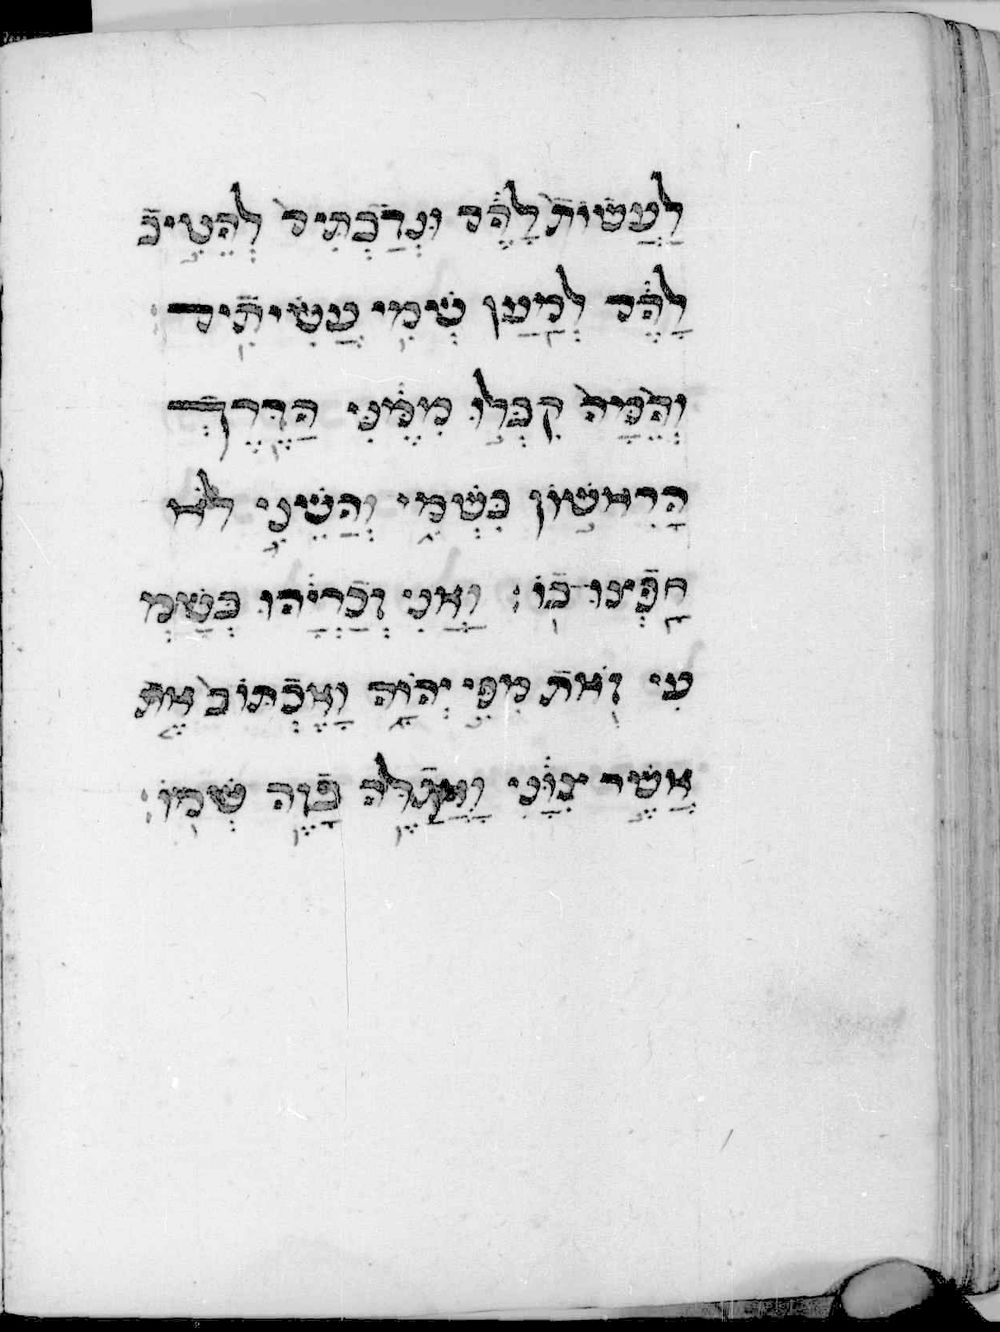 לַעֲשׂוֹת לָהֶם וּנְדַבְתִים לְהֵטִיב
לָהֶם לְמַעַן שְׁמִי עֲשִׂיתִים׃
וְהֵמָּה קִבְּלוּ מִמֶּנִּי הַדֶּרֶךְ
הָרִאשׁוֹן כִּשְׁמִי וְהַשֵּׁנִי לֹא
חָפְצוּ בוֹ׃ וַאֲנִי זְכַרְיָהוּ בְּשָׁמְ
עִי זֹאת מִפִּי יְהוָה וָאֶכְתּוֹב אֶת
אֲשֶׁר צִוַּנִי וָאֲגַלֶּה בָּזֶה שְׁמוֹ׃